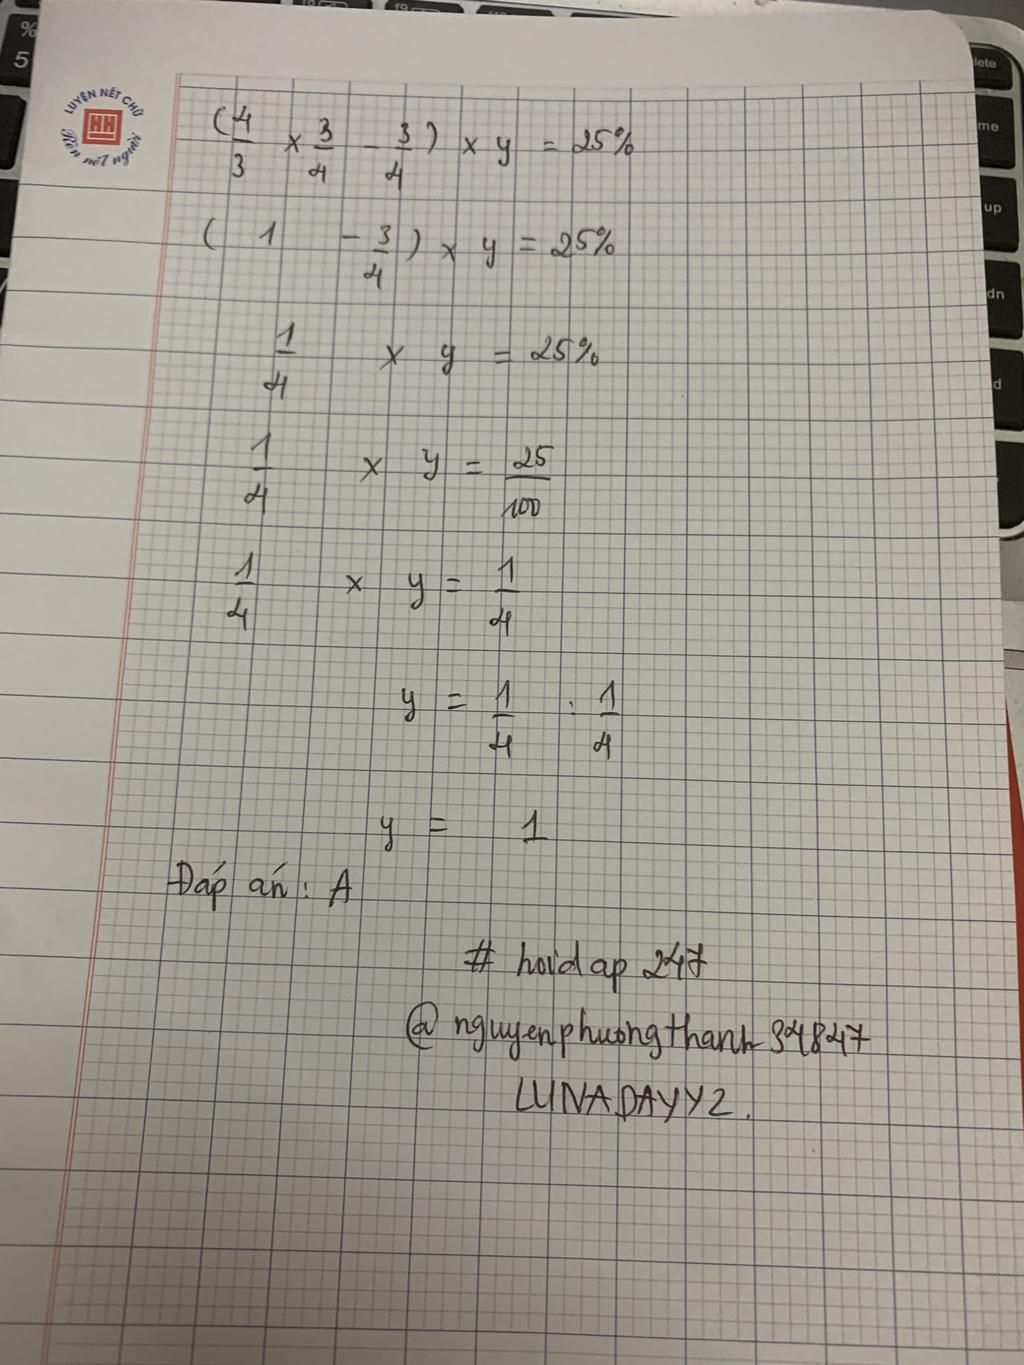 %
5
lete
me
up
dn
d
LUYỆN NÉT CHỮ
HH
Rèn nết người
(4/3 × 3/4 - 3/4) × y = 25%
( 1 - 3/4 ) × y = 25%
1/4 × y = 25%
1/4 × y = 25/100
1/4 × y = 1/4
y = 1/4 : 1/4
y = 1
Đáp án : A
# hoidap 247
@nguyenphuongthanh34847
LUNADAYY2.